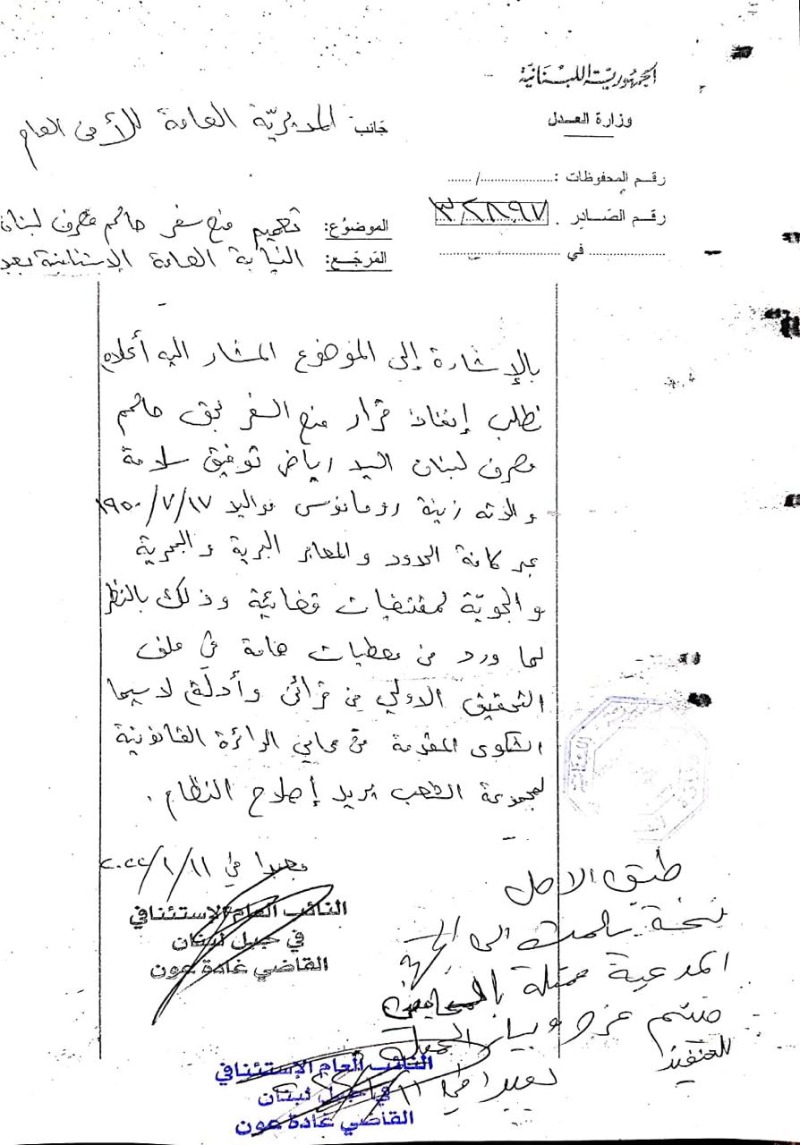 الجمهوريّة اللبنانيّة
وزارة العدل
جانب: المديريّة العامة للأمن العام
رقم المحفوظات : ........../......
رقم الصّادر ٣/٢٨٩٧
في
الموضوع: تعميم منع سفر حاكم مصرف لبنان
المرجع: النيابة العامة الإستئنافية بعبدا
بالإشارة إلى الموضوع المشار اليه أعلاه
نطلب إنفاذ قرار منع السفر بحق حاكم
مصرف لبنان السيد رياض توفيق سلامة
والدته زينة رومانوس مواليد ١٩٥٠/٧/١٧
عبر كافة الحدود والمعابر البرية والبحرية
والجويّة لمقتضيات قضائية وذلك بالنظر
لما ورد من معطيات هامة في ملف
التحقيق الاولي من قرائن وأدلة لا سيما
الشكوى المقدمة من محامي الدائرة القانونية
لمجموعة الشعب يريد إصلاح النظام.
بعبدا في ٢٠٢٢/١/١١
النائب العام الإستئنافي
في جبل لبنان
القاضي غادة عون
طبق الاصل
نسخة سلمت الى الجهة
المدعية ممثلة بالمحاميين
هيثم عزو وبيار الجميل
للتنفيذ
بعبدا في ١١
النائب العام الإستئنافي
في جبل لبنان
القاضي غادة عون